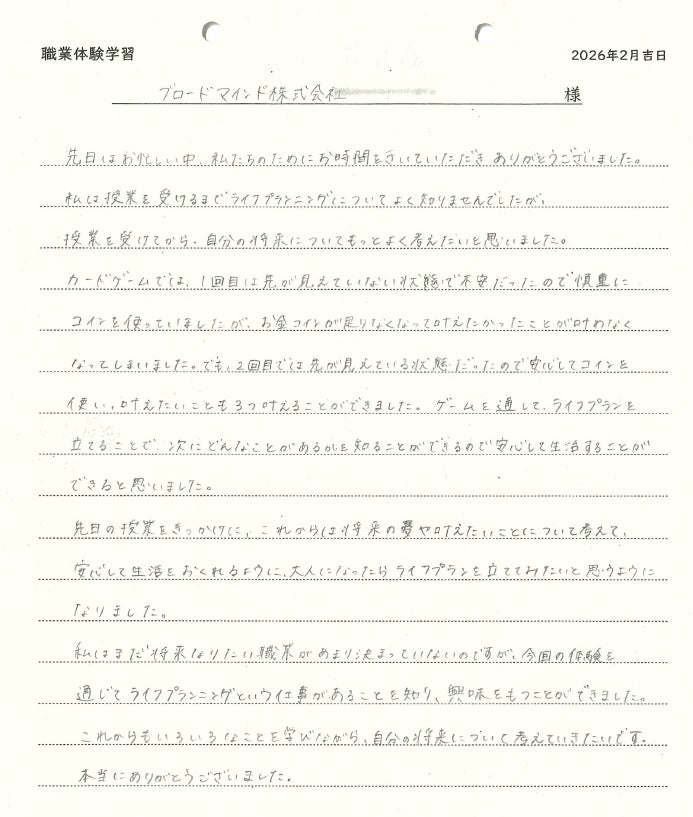 職業体験学習
2026年2月吉日
ブロードマインド株式会社
様
先日はお忙しい中、私たちのためにお時間をさいていただきありがとうございました。
私は授業を受けるまでライフプランニングについてよく知りませんでしたが、
授業を受けてから、自分の将来についてもっとよく考えたいと思いました。
カードゲームでは、1回目は先が見えていない状態で不安だったので慎重に
コインを使っていましたが、お金コインが足りなくなって叶えたかったことが叶わなく
なってしまいました。でも、2回目では先が見えている状態だったので安心してコインを
使い、叶えたいことも3つ叶えることができました。ゲームを通して、ライフプランを
立てることで、次にどんなことがあるかを知ることができるので安心して生活することが
できると思いました。
先日の授業をきっかけに、これからは将来の夢や叶えたいことについて考えて、
安心して生活をおくれるように、大人になったらライフプランを立ててみたいと思うように
なりました。
私はまだ将来なりたい職業があまり決まっていないのですが、今回の体験を
通じてライフプランニングという仕事があることを知り、興味をもつことができました。
これからもいろいろなことを学びながら、自分の将来について考えていきたいです。
本当にありがとうございました。